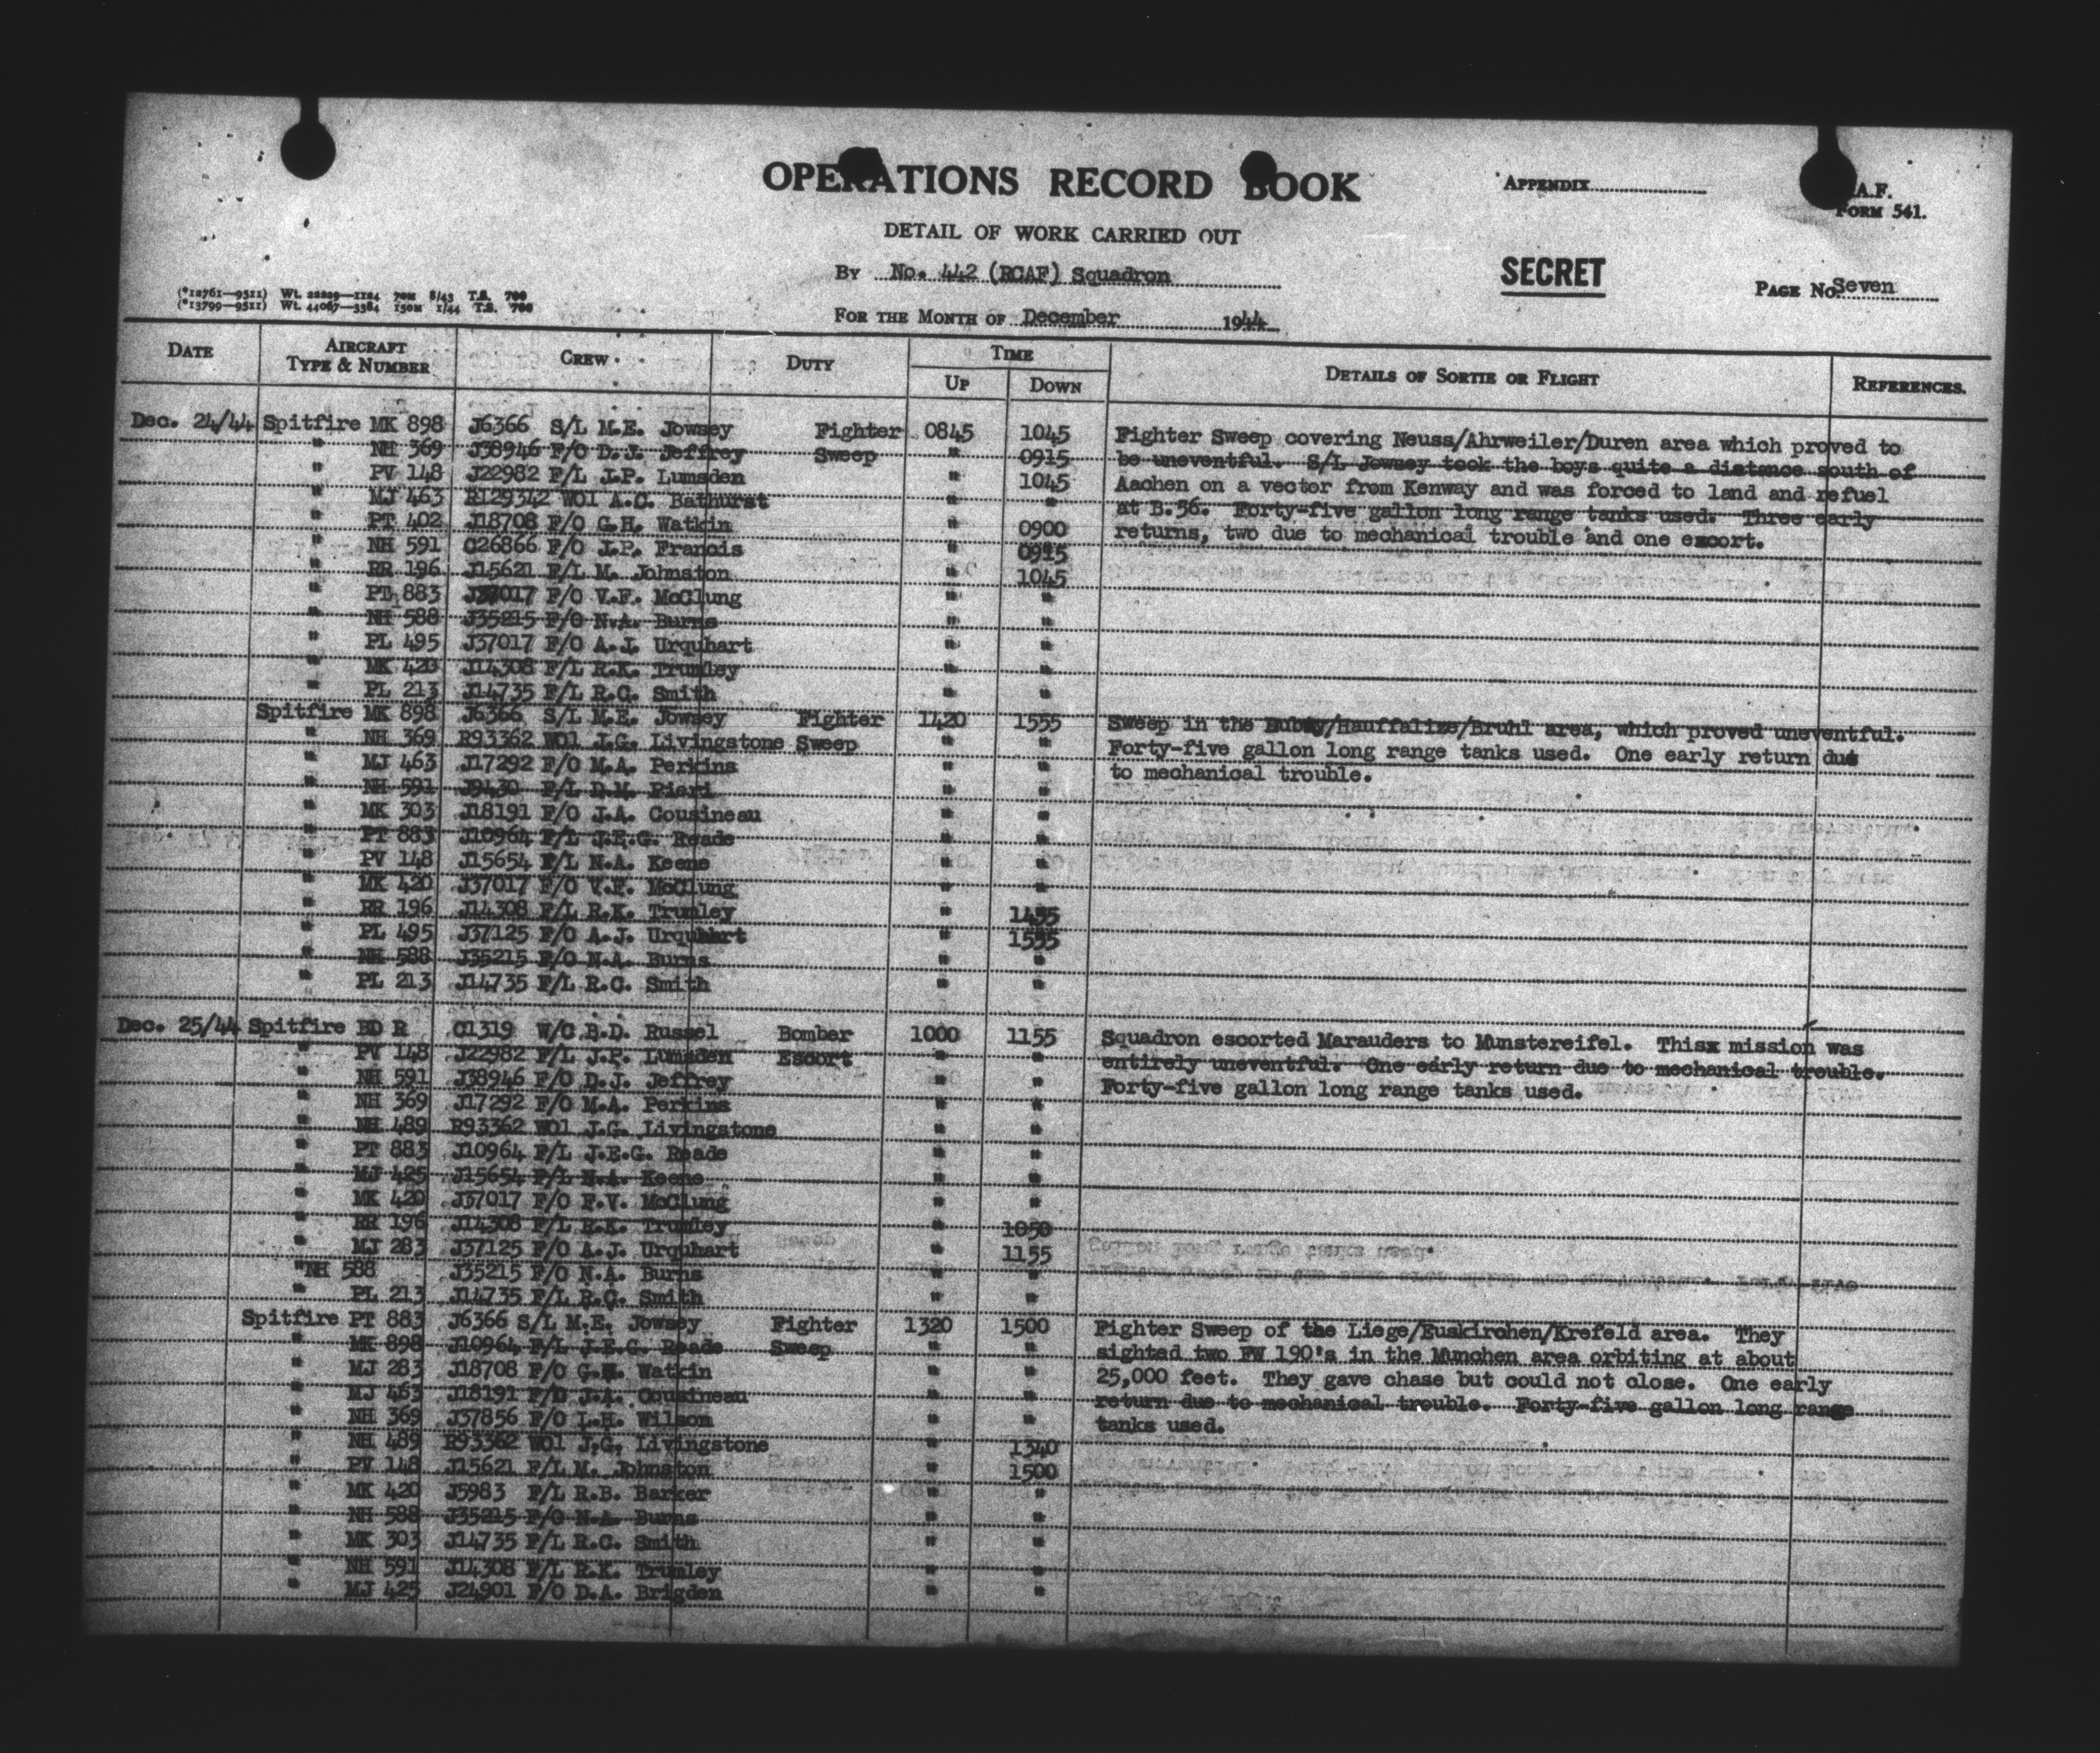 OPERATIONS RECORD BOOK
APPENDIX
A.F.
FORM 541.
DETAIL OF WORK CARRIED OUT
BY No. 442 (RCAF) Squadron
SECRET
PAGE No. Seven
(*12761—9511) Wt. 22209—1124 70M 8/43 T.S. 700
(*13799—9511) Wt. 44067—3384 150M 1/44 T.S. 700
FOR THE MONTH OF December 1944
DATE AIRCRAFT TYPE & NUMBER CREW DUTY TIME UP DOWN DETAILS OF SORTIE OR FLIGHT REFERENCES.
Dec. 24/44 Spitfire MK 898 J6366 S/L M.E. Jowsey Fighter 0845 1045 Fighter Sweep covering Neuss/Ahrweiler/Duren area which proved to
" NH 369 J38946 F/O D.J. Jeffrey Sweep " 0915 be uneventful. S/L Jowsey took the boys quite a distance south of
" PV 148 J22982 F/L J.P. Lumsden " 1045 Aachen on a vector from Kenway and was forced to land and refuel
" MJ 463 R129342 WO1 A.C. Bathurst " " at B.56. Forty-five gallon long range tanks used. Three early
" PT 402 J18708 F/O G.H. Watkin " 0900 returns, two due to mechanical trouble and one escort.
" NH 591 C26866 F/O J.P. Francis " 0915
" RR 196 J15621 F/L M. Johnston " 1045
" PT 883 J37017 F/O V.F. McClung " "
" NH 588 J35215 F/O N.A. Burns " "
" PL 495 J37017 F/O A.J. Urquhart " "
" MK 420 J14308 F/L R.K. Trumley " "
" PL 213 J14735 F/L R.C. Smith " "
Spitfire MK 898 J6366 S/L M.E. Jowsey Fighter 1420 1555 Sweep in the /Hauffalize/Bruhl area, which proved uneventful.
" NH 369 R93362 WO1 J.G. Livingstone Sweep " " Forty-five gallon long range tanks used. One early return due
" MJ 463 J17292 F/O M.A. Perkins " " to mechanical trouble.
" NH 591 J9430 F/L D.M. Pieri " "
" MK 303 J18191 F/O J.A. Cousineau " "
" PT 883 J10964 F/L J.E.G. Reade " "
" PV 148 J15654 F/L N.A. Keene " "
" MK 420 J37017 F/O V.F. McClung " "
" RR 196 J14308 F/L R.K. Trumley " 1455
" PL 495 J37125 F/O A.J. Urquhart " 1555
" NH 588 J35215 F/O N.A. Burns " "
" PL 213 J14735 F/L R.C. Smith " "
Dec. 25/44 Spitfire BD R C1319 W/C B.D. Russel Bomber 1000 1155 Squadron escorted Marauders to Munstereifel. Thisx mission was
" PV 148 J22982 F/L J.P. Lumsden Escort " " entirely uneventful. One early return due to mechanical trouble.
" NH 591 J38946 F/O D.J. Jeffrey " " Forty-five gallon long range tanks used.
" NH 369 J17292 F/O M.A. Perkins " "
" NH 489 R93362 WO1 J.G. Livingstone " "
" PT 883 J10964 F/L J.E.G. Reade " "
" MJ 425 J15654 F/L N.A. Keene " "
" MK 420 J37017 F/O F.V. McClung " "
" RR 196 J14308 F/L R.K. Trumley " 1050
" MJ 283 J37125 F/O A.J. Urquhart " 1155
" NH 588 J35215 F/O N.A. Burns " "
" PL 213 J14735 F/L R.C. Smith " "
Spitfire PT 883 J6366 S/L M.E. Jowsey Fighter 1320 1500 Fighter Sweep of the Liege/Euskirchen/Krefeld area. They
" MK 898 J10964 F/L J.E.G. Reade Sweep " " sighted two FW 190's in the Munchen area orbiting at about
" MJ 283 J18708 F/O G.H. Watkin " " 25,000 feet. They gave chase but could not close. One early
" MJ 463 J18191 F/O J.A. Cousineau " " return due to mechanical trouble. Forty-five gallon long range
" NH 369 J37856 F/O L.H. Wilson " " tanks used.
" NH 489 R93362 WO1 J.G. Livingstone " 1340
" PV 148 J15621 F/L M. Johnston " 1500
" MK 420 J5983 F/L R.B. Barker " "
" NH 588 J35215 F/O N.A. Burns " "
" MK 303 J14735 F/L R.C. Smith " "
" NH 591 J14308 F/L R.K. Trumley " "
" MJ 425 J24901 F/O D.A. Brigden " "